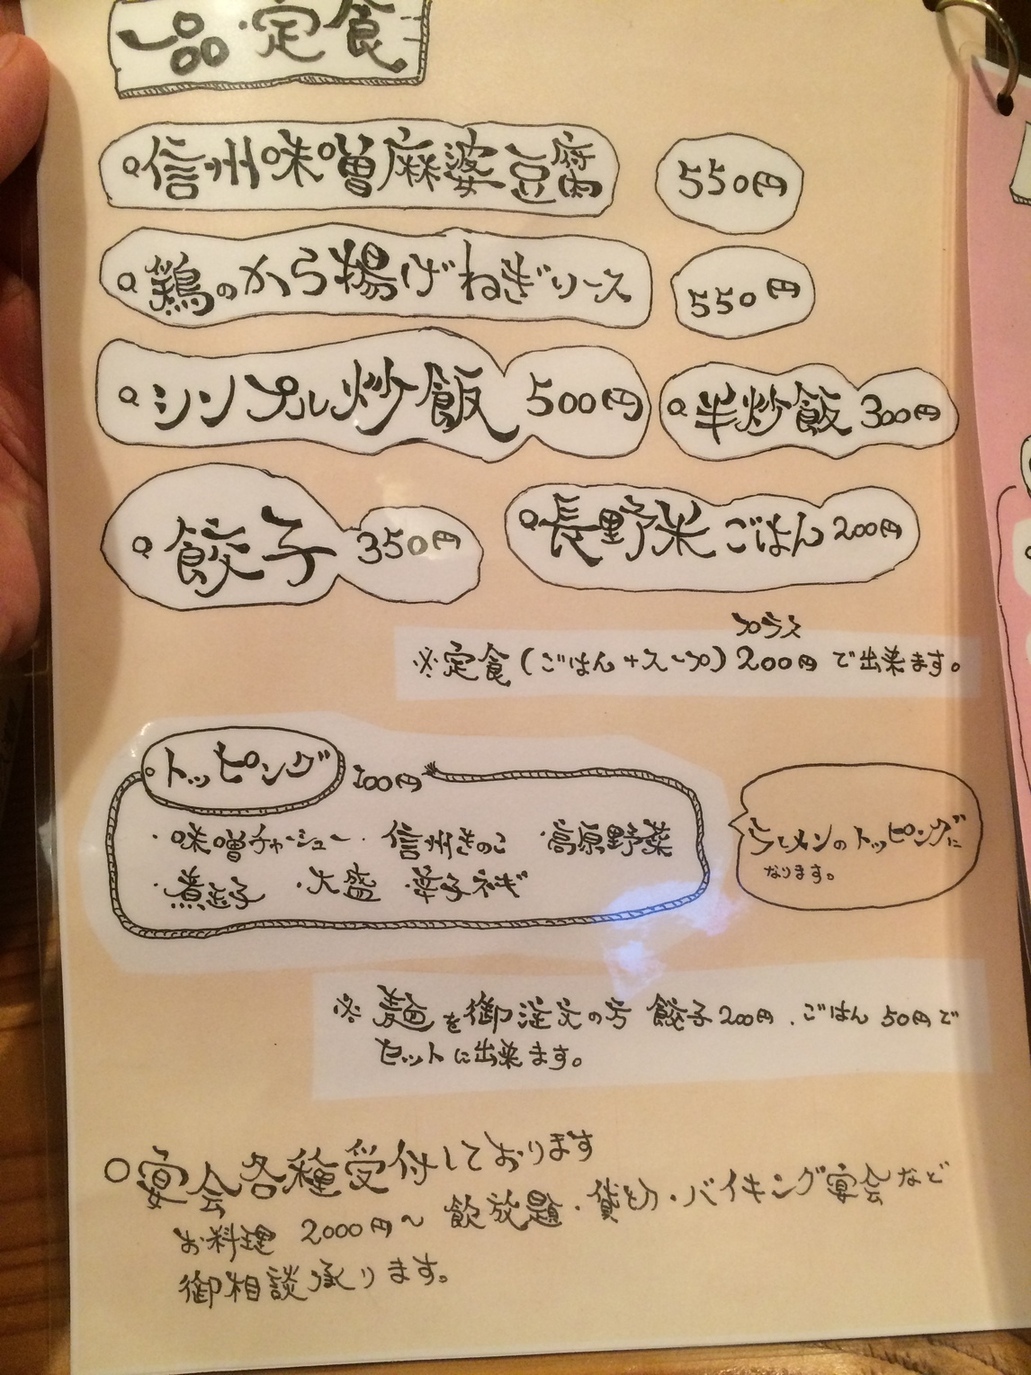 一品・定食
信州味噌麻婆豆腐 550円
鶏のから揚げねぎソース 550円
シンプル炒飯 500円 半炒飯 300円
餃子 350円 長野米ごはん 200円
プラス
※定食(ごはん+スープ)200円で出来ます。
トッピング 100円
・味噌チャーシュー ・信州きのこ ・高原野菜
・煮玉子 ・大盛 ・辛子ネギ
ラーメンのトッピングに
なります。
※麺を御注文の方 餃子200円、ごはん50円で
セットに出来ます。
○宴会各種受付しております
お料理 2000円〜 飲放題・貸切・バイキング宴会など
御相談承ります。